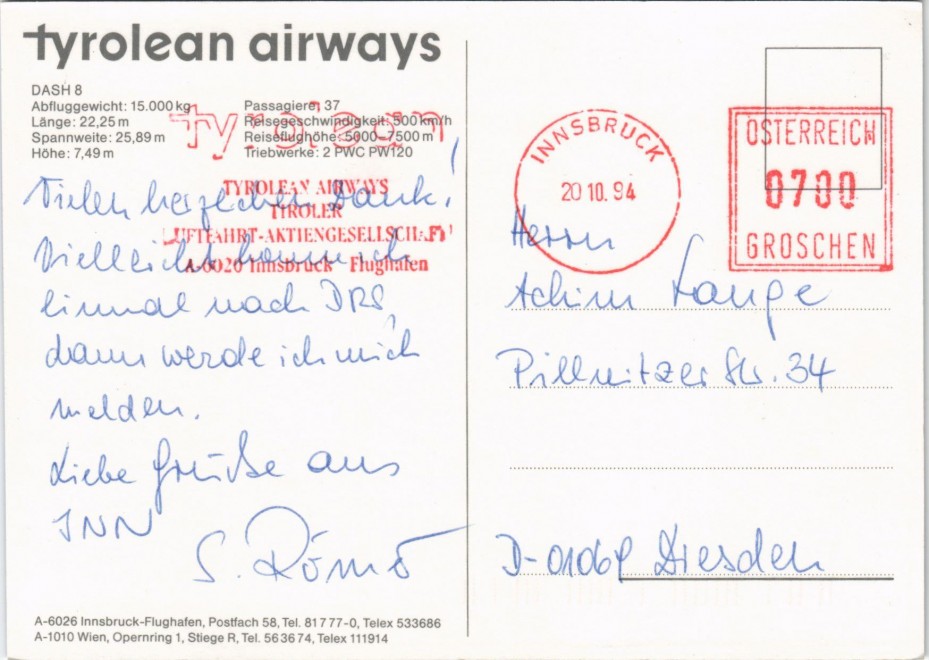 tyrolean airways
DASH 8
Abfluggewicht: 15.000 kg
Länge: 22,25 m
Spannweite: 25,89 m
Höhe: 7,49 m
Passagiere: 37
Reisegeschwindigkeit: 500 km/h
Reiseflughöhe: 5000–7500 m
Triebwerke: 2 PWC PW120
tyrolean
TYROLEAN AIRWAYS
TIROLER
LUFTFAHRT-AKTIENGESELLSCHAFT
A-6020 Innsbruck - Flughafen
INNSBRUCK
20 10. 94
ÖSTERREICH
0700
GROSCHEN
Vielen herzlichen Dank!
Vielleicht komme ich
einmal nach DRS,
dann werde ich mich
melden.
Liebe Grüße aus
INN
S.
Herrn
Achim Lange
Pillnitzer Str. 34
D-01069 Dresden
A-6026 Innsbruck-Flughafen, Postfach 58, Tel. 817 77-0, Telex 533686
A-1010 Wien, Opernring 1, Stiege R, Tel. 56 36 74, Telex 111914